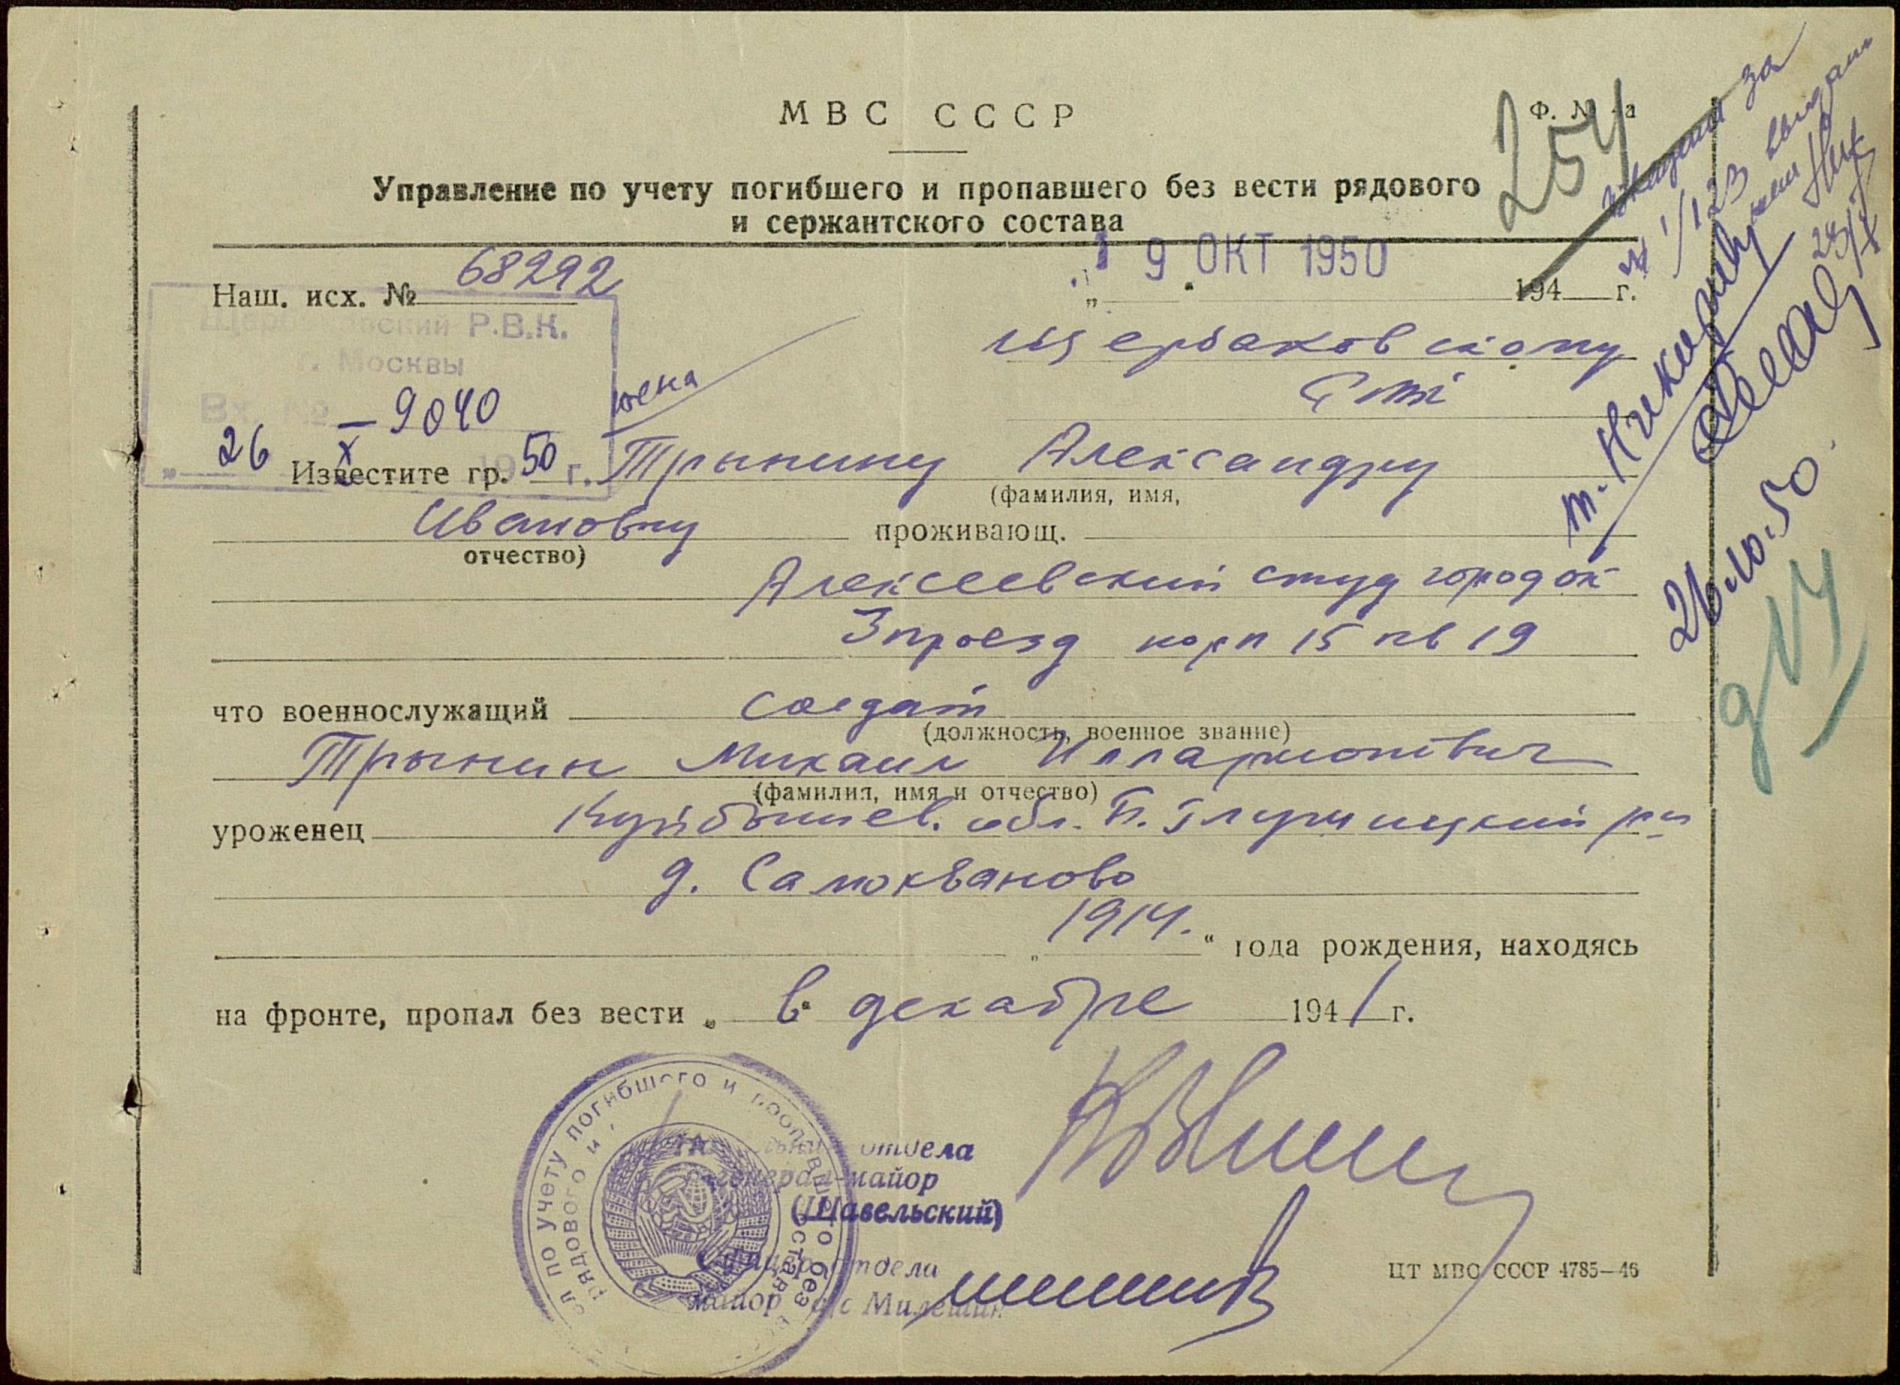 МВС СССР
Ф. №
254
Управление по учету погибшего и пропавшего без вести рядового
и сержантского состава
19 ОКТ 1950
Наш. исх. № 68292
„ “ 194 г.
Щербаковский Р.В.К.
г. Москвы
Вх. № 9040
26 X 1950 г.
Щербаковскому
жена
Известите гр. Трынину Александру
(фамилия, имя,
Ивановну проживающ.
отчество)
Алексеевский студ городок
3 проезд корп 15 кв 19
что военнослужащий солдат
(должность, военное звание)
Трынин Михаил Илларионович
(фамилия, имя и отчество)
уроженец Куйбышев. обл. Б. Глушицкий р-н
д. Самокваново
„ 1914. “ года рождения, находясь
на фронте, пропал без вести „ в декабре 1941 г.
Начальник отдела
генерал-майор
(Шавельский)
Офицер отдела
майор а/с Милешин
по учету погибшего и пропавшего без
рядового и состава
ЦТ МВС СССР 4785—46
за
№ 1/123
28/X
26.10.50